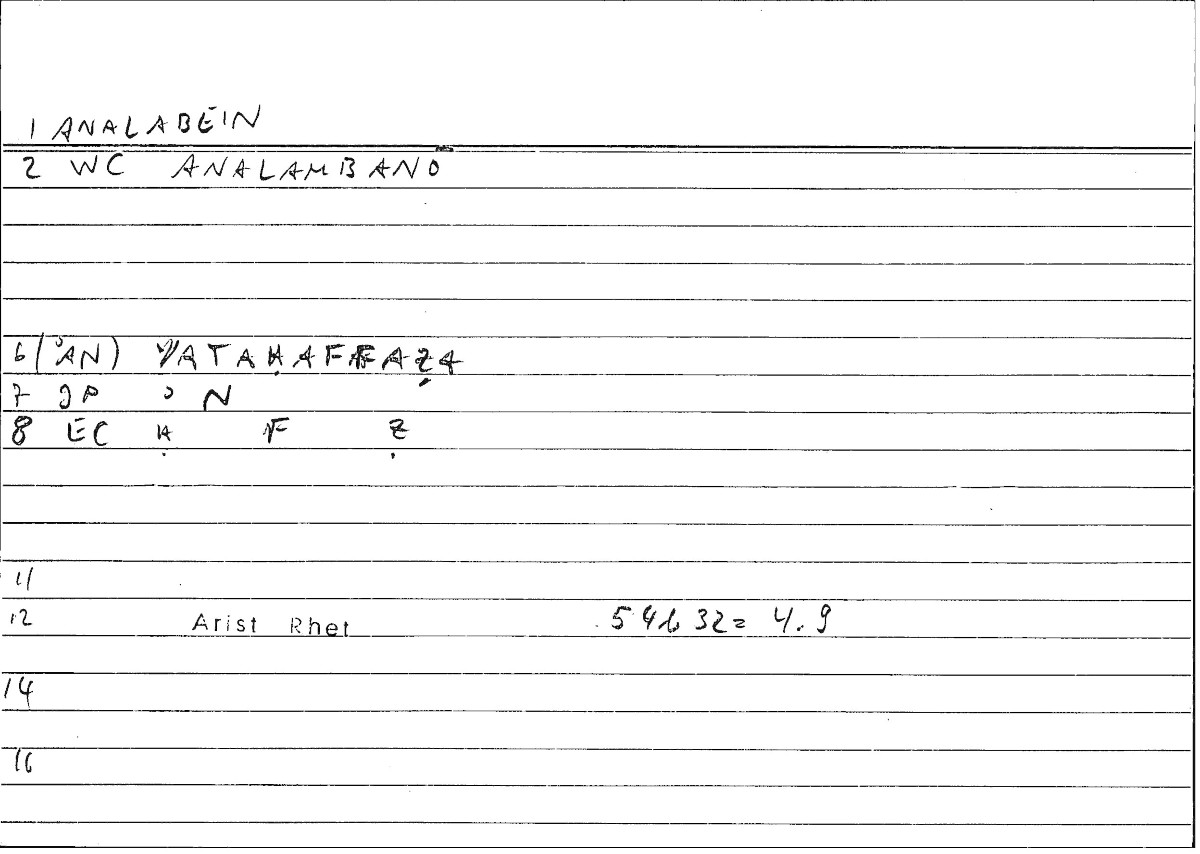 1 ANALABEIN
2 WC ANALAMBANO
6 (ʾAN) YATAḤAFFAẒA
7 JP ʾ N
8 EC Ḥ F Ẓ
11
12 Arist Rhet 54b 32= 4.9
14
16